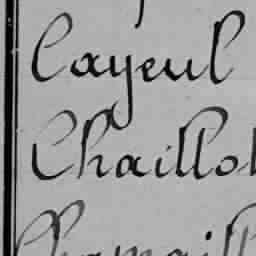 Cayeul
Chaillot